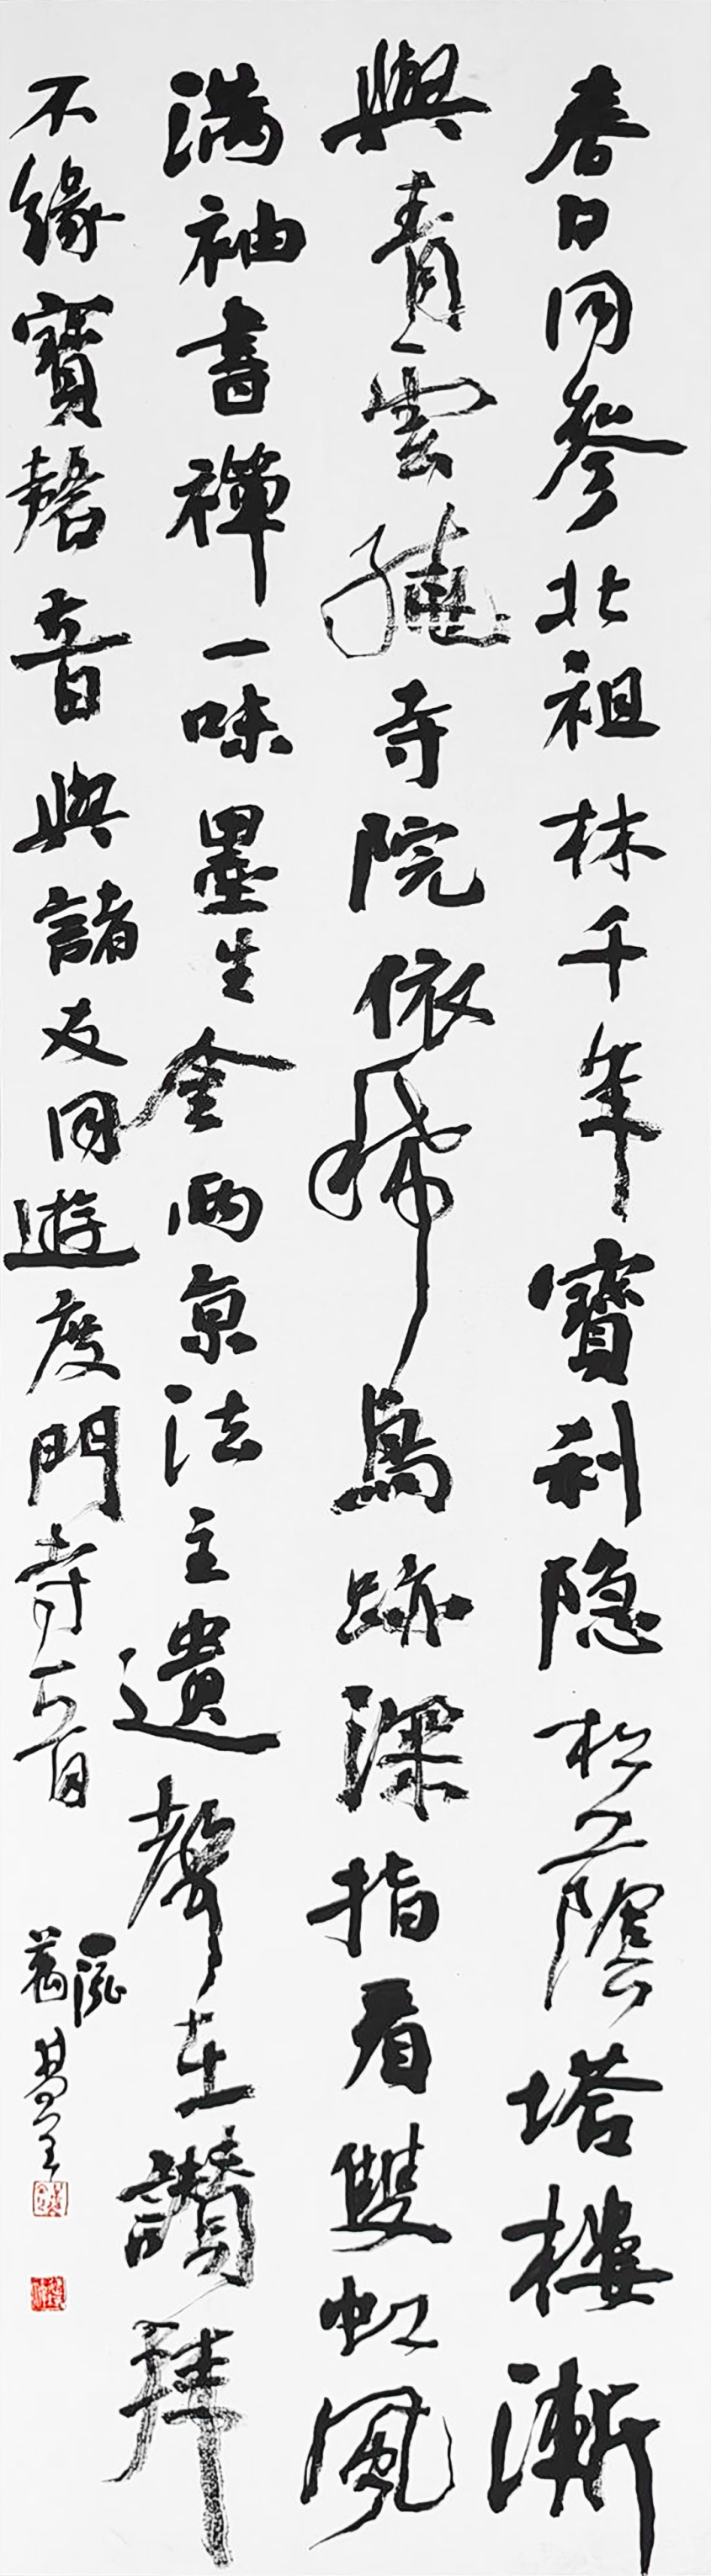 春日同參北祖林千年寶刹隐松陰塔樓漸
與青雲繞寺院依稀鳥跡深指看雙虹風
满袖書禪一味墨生金兩京法主遺聲在讚拜
不緣寶磬音與諸友同遊度門寺一首